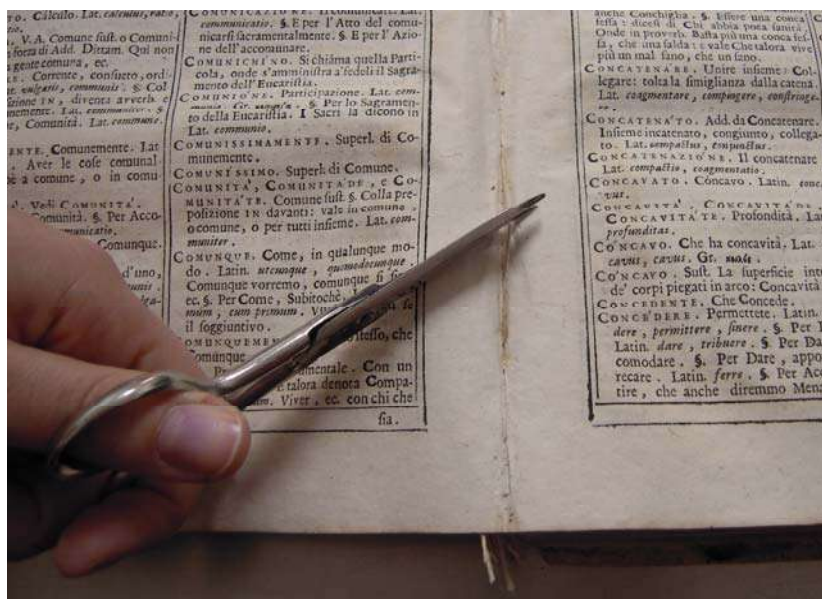 TO. Cálculo. Lat. calculus, ratio,
V. A. Comune ſuſt. o Comuni-
forza di Add. Dittam. Qui non
gente comuna, ec.
Corrente, conſueto, ordi-
vulgaris, communis. §. Col
IN, diventa avverb. e
Comunità. Lat. commune.
Comunemente. Lat
Aver le coſe comunal
a comune, o in comu
Vedi COMUNITA'.
Comunità. §. Per Acco-
Comunque.
d'uno,
communicatio. §. E per l'Atto del comu-
nicarſi ſacramentalmente. §. E per l'Azio-
ne dell'accomunare.
COMUNICHI'NO. Si chiáma quella Parti-
cola, onde s'amminiſtra a'fedeli il Sagra-
mento dell'Euchariſtia.
COMUNIO'NE. Participazione. Lat. com-
§. Per lo Sagramen-
to della Eucariſtia. I Sacri la dicono in
Lat. communio.
COMUNISSIMAMENTE. Superl. di Co-
munemente.
COMUNI'SSIMO. Superl. di Comune.
COMUNITA', COMUNITA'DE, e CO-
MUNITA'TE. Comune ſuſt. §. Colla pre-
poſizione IN davanti: vale in comune,
o comune, o per tutti inſieme. Lat. com-
muniter.
COMUNQUE. Come, in qualunque mo-
do. Latin. utcunque, quomodocunque.
Comunque vorremo, comunque ſi
ec. §. Per Come, Subitochè,
cum primum.
il ſoggiuntivo.
che
Comúnque
Con un
E talora denota Compa-
Viver, ec. con chi che
ſia.
anche Conchiglia. §. Eſſere una conca
feſſa: diceſi di Chi abbia poca ſanità
Onde in proverb. Baſta più una conca feſ-
ſa, che una ſalda: vale Che talora vive
più un mal ſano, che un ſano.
CONCATENA'RE. Unire inſieme: Col-
legare: tolta la ſimiglianza dalla catena.
Lat. coagmentare, compingere, conſtringe-
re.
CONCATENA'TO. Add. da Concatenare.
Inſieme incatenato, congiunto, collega-
to. Lat. compactus, conjunctus.
CONCATENAZIO'NE. Il concatenare
Lat. compactio, coagmentatio.
CONCAVATO. Cóncavo. Latin. conc
vus.
CONCAVITA', CONCAVITA'DE,
CONCAVITA'TE. Profondità. La
profunditas.
CO'NCAVO. Che ha concavità. Lat.
cavus, cavus. Gr.
CO'NCAVO. Suſt. La ſuperficie int
de' corpi piegati in arco: Concavità
CONCEDENTE. Che Concede.
CONCE'DERE. Permettete. Latin.
dere, permittere, ſinere. §. Per
Latin. dare, tribuere. §. Per Da
comodare. §. Per Dare, appo
recare. Latin. ferre. §. Per Acc
tire, che anche diremmo Mena